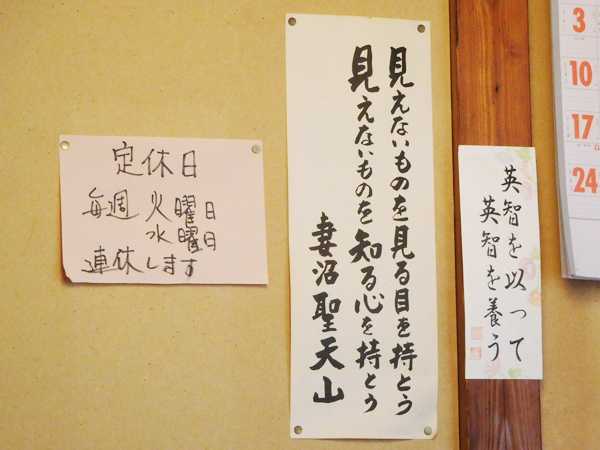 定休日
毎週 火曜日
水曜日
連休します
見えないものを見る目を持とう
見えないものを知る心を持とう
妻沼聖天山
英智を以って
英智を養う
3
10
17
24